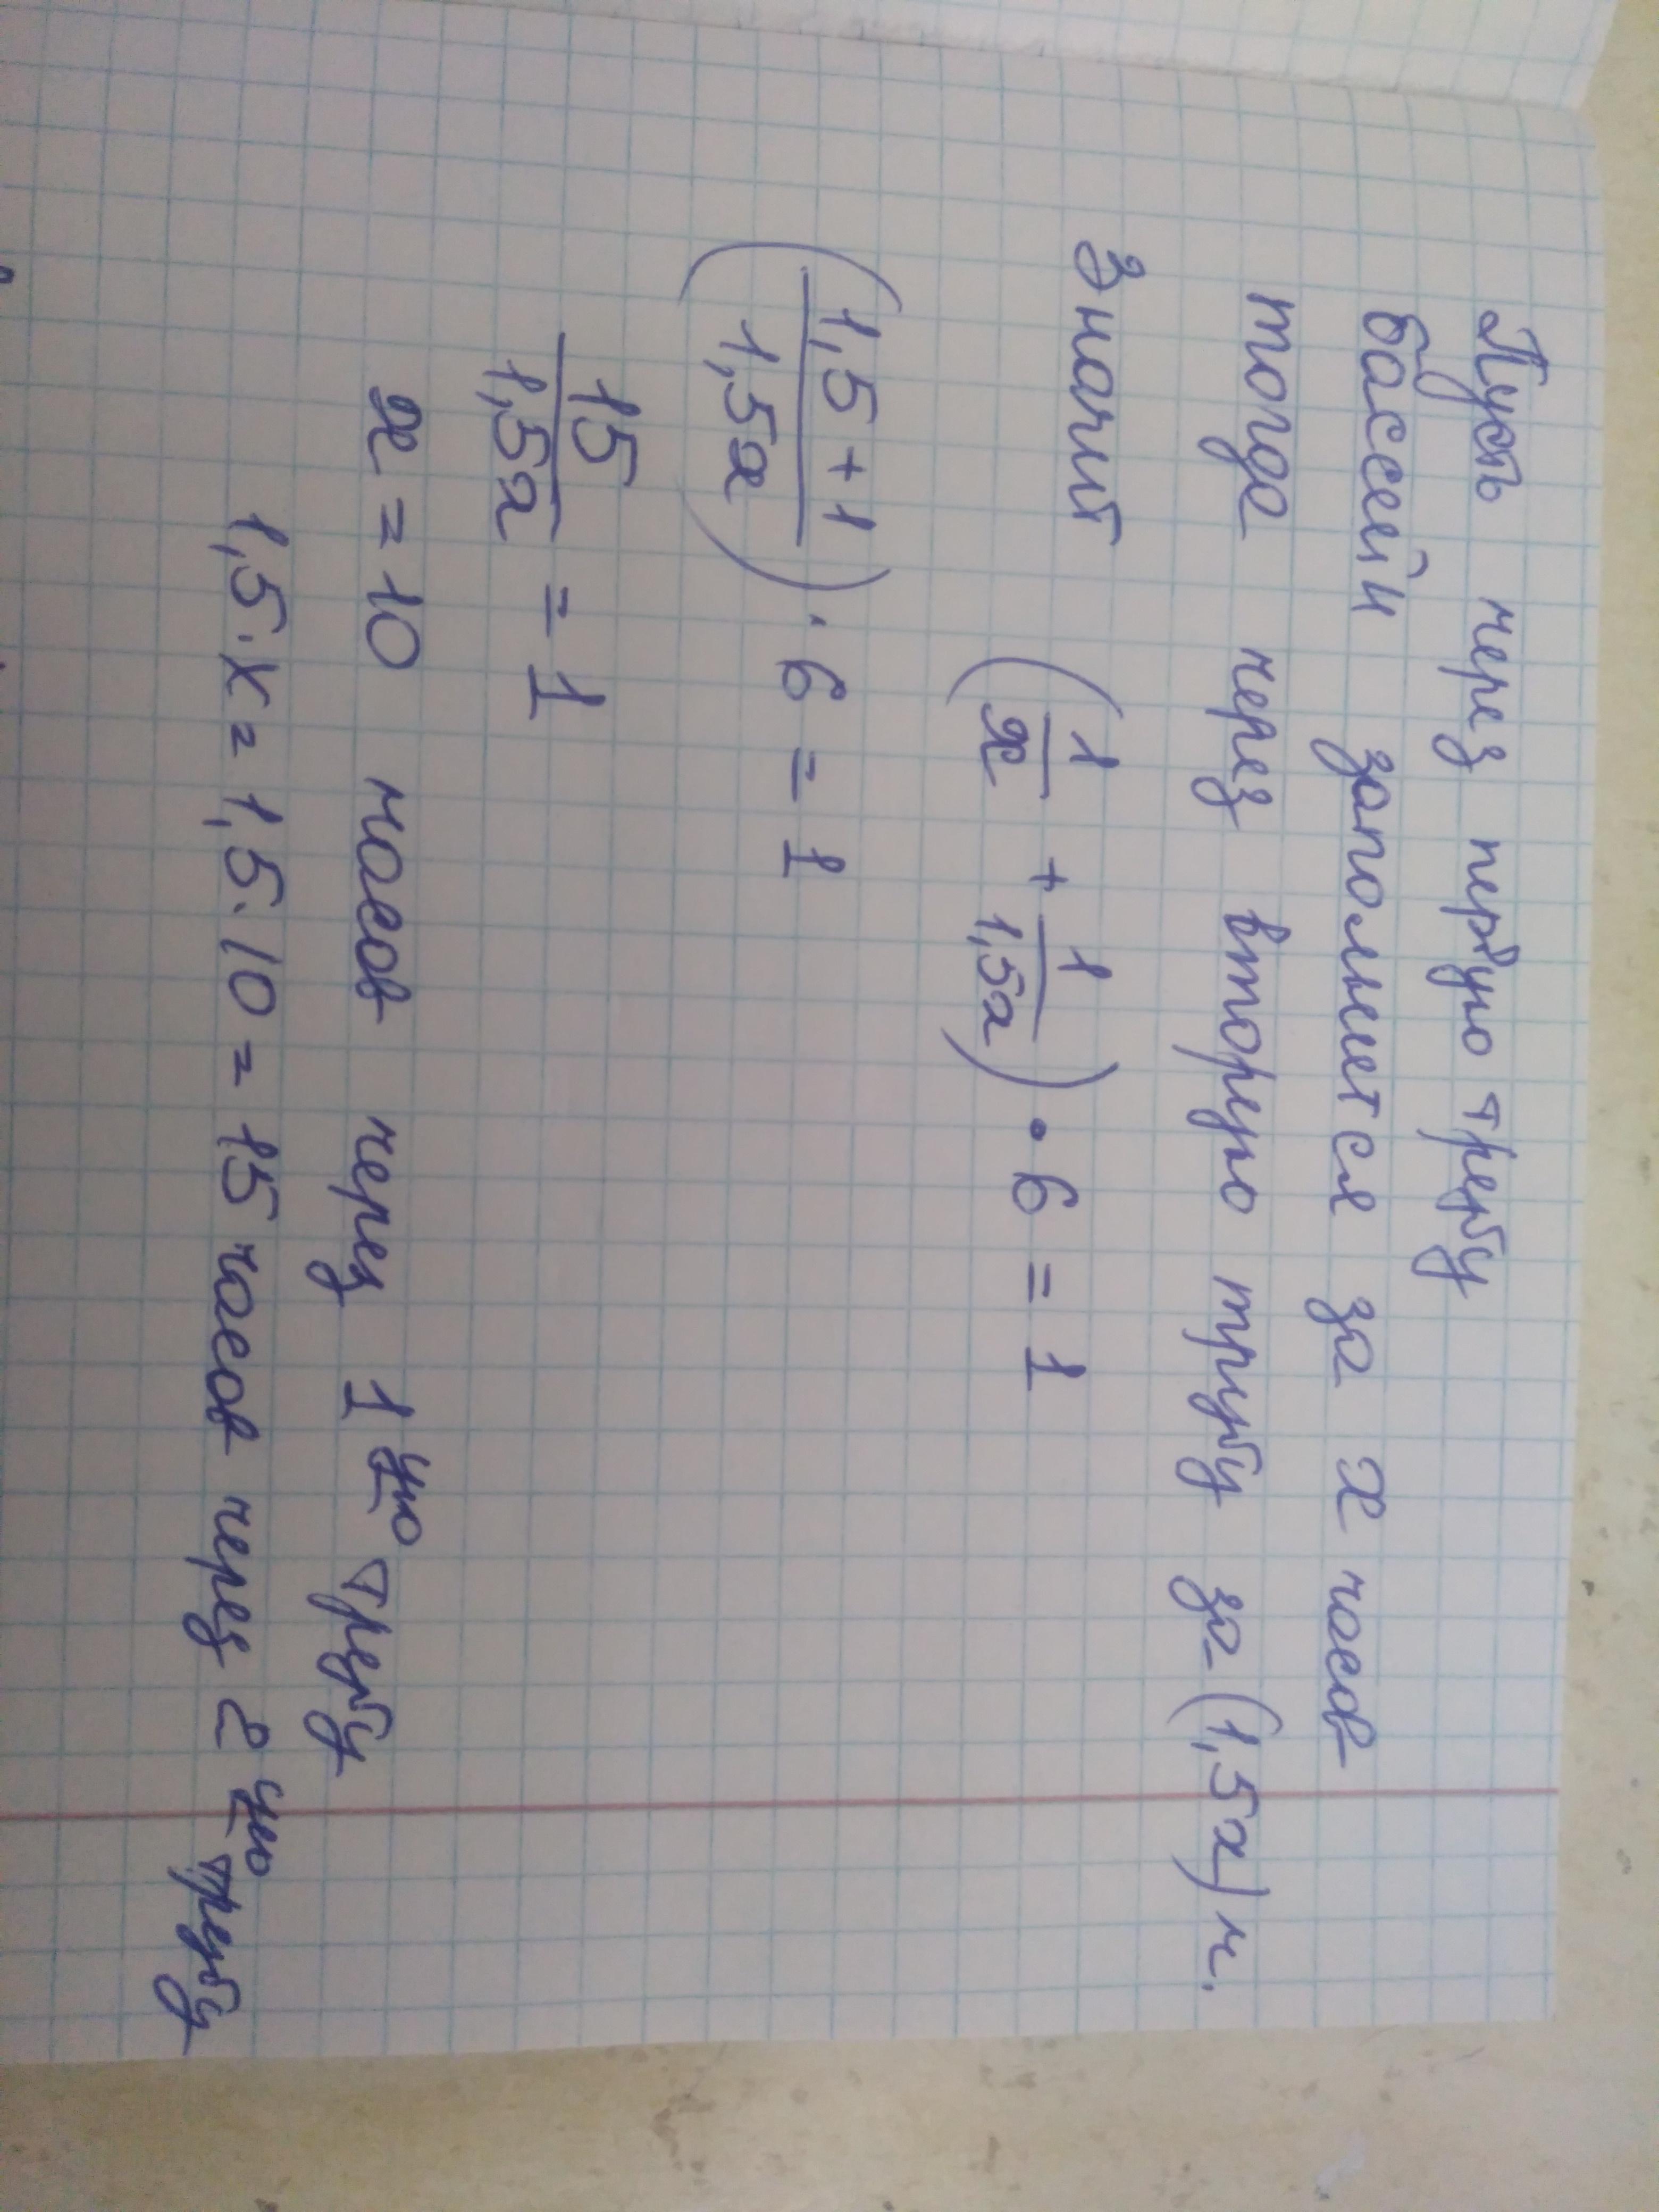 Пусть через первую трубу
бассейн заполнется за x часов
тогда через вторую трубу за (1,5x) ч.
Значит (1/x + 1/1,5x) · 6 = 1
(1,5+1/1,5x) · 6 = 1
15/1,5x = 1
x = 10 часов через 1ую трубу
1,5·x = 1,5·10 = 15 часов через 2ую трубу